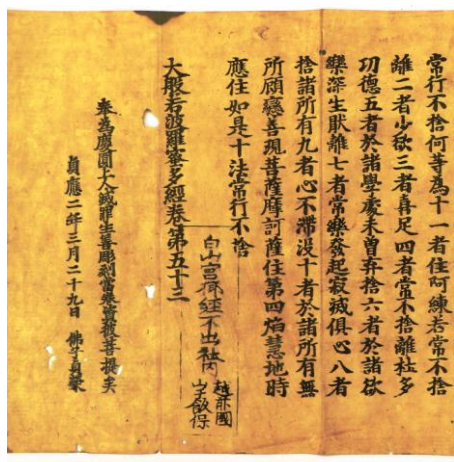 常行不捨何等為十一者住阿練若常不捨
離二者少欲三者喜足四者常不捨離杜多
功德五者於諸學處未曾弃捨六者於諸欲
樂深生猒離七者常樂發起寂滅俱心八者
捨諸所有九者心不滯没十者於諸所有無
所顧戀善現菩薩摩訶薩住第四焰慧地時
應住如是十法常行不捨
大般若波羅蜜多經卷第五十三
白山宮
經不出
越前國
奉為慶圓上人滅罪生善彫刻當卷證菩提矣
貞應二年三月二十九日 佛子貞榮